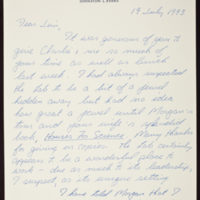 19 July 1993
Dear Jim,
It was generous of you to
give Charles & me so much of
your time as well as lunch
last week. I had always suspected
the Lab to be a bit of a jewel
hidden away but had no idea
how great a jewel until Morgan's
tour and your wife's splendid
book, Houses For Science. Many thanks
for giving us copies. The Lab certainly
appears to be a wonderful place to
work - due as much to its leadership,
I suspect, as its unique setting.
I have told Morgan that I